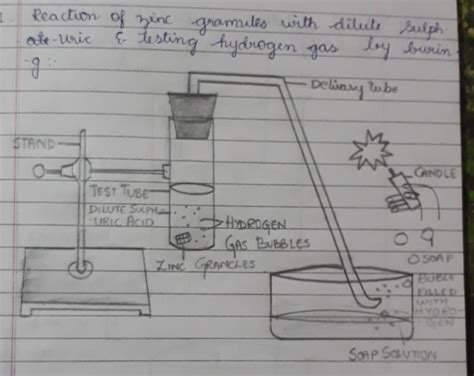 Reaction of zinc granules with dilute sulph
uric & testing hydrogen gas by burin
g :-
Delivary tube
STAND
CANDLE
TEST TUBE
DILUTE SULPH
URIC ACID
HYDROGEN
GAS BUBBLES
ZINC GRANCLES
SOAP
BUBLE
FILLED
WITH
HYDRO
GEN
SOAP SOLUTION